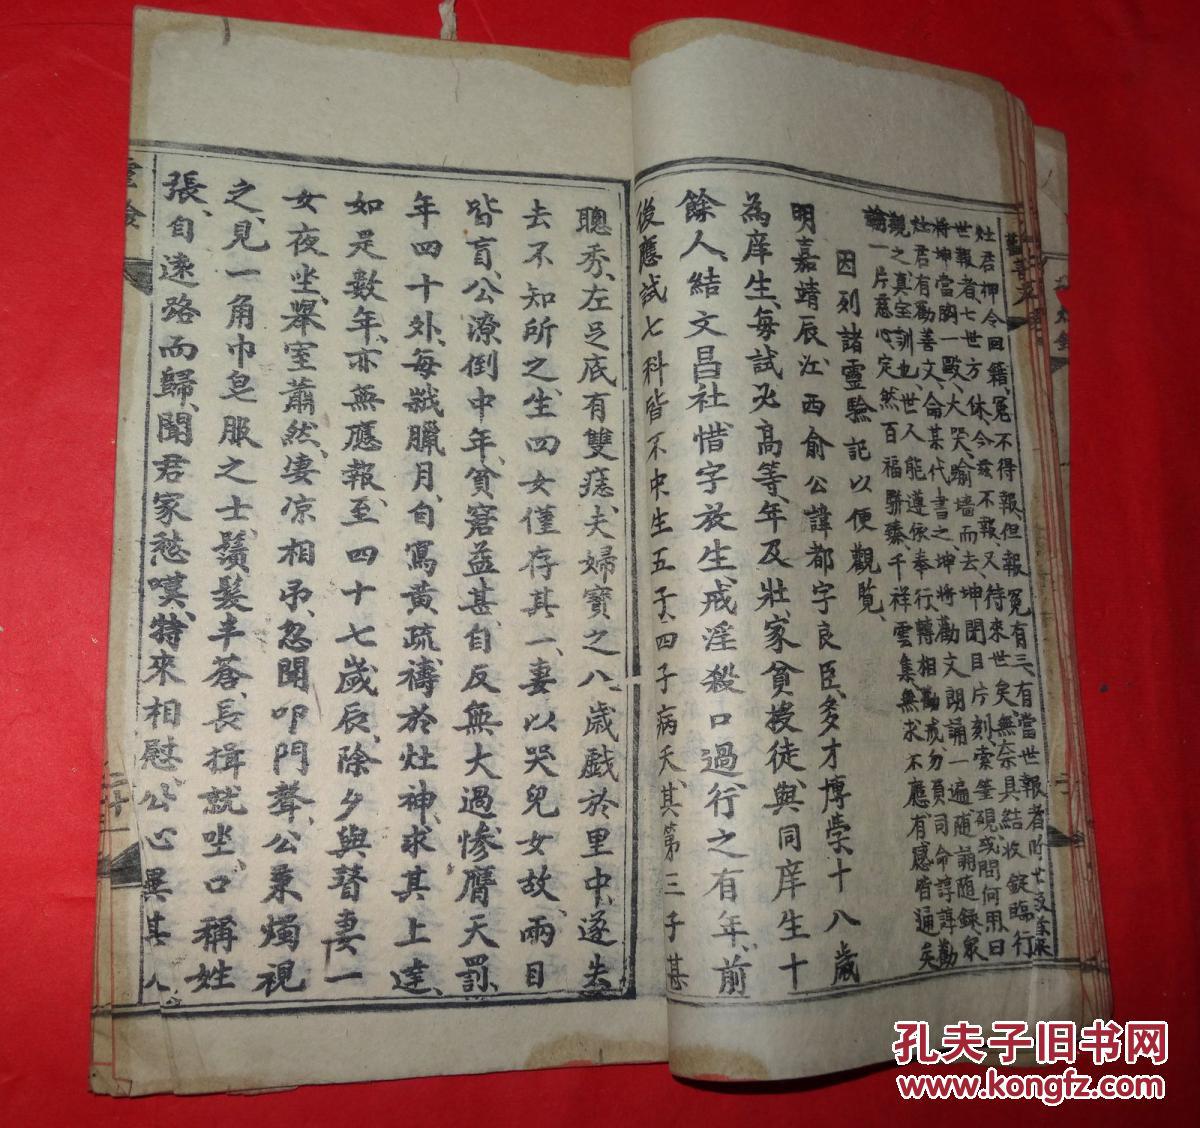 灶君押令回籍、冤不得報但報冤有三、有當世報者
世報者、七世方休、今茲不報、又待來世矣、無奈具結收錠臨行
將坤當胸一毆、大哭踰墻而去、坤開目片刻、索筆硯、或問何用、曰
灶君有勸善文、命某代書之、坤將勸文朗誦一遍、隨誦隨錄、眾
觀之、真宝訓也、世人能遵依奉行、轉相勸戒、勿負司命諄諄勸
諭一片慈心、定然百福駢臻、千祥雲集、無求不應、有感皆通矣
因列諸靈驗記以便觀覧、
明嘉靖辰、江西俞公諱都字良臣、多才博學、十八歲
為庠生、每試必高等、年及壯、家貧授徒、與同庠生十
餘人、結文昌社、惜字放生、戒淫殺口過、行之有年、前
後應試七科皆不中、生五子、四子病夭、其第三子甚
聰秀、左足底有雙痣、夫婦寶之、八歲戲於里中、遂失
去不知所之、生四女僅存其一、妻以哭兒女故、兩目
皆盲、公潦倒中年、貧窘益甚、自反無大過、慘膺天罰、
年四十外、每歲臘月、自寫黃疏、禱於灶神、求其上達、
如是數年、亦無應報、至四十七歲辰、除夕與瞽妻一
女夜坐、舉室蕭然、凄凉相吊、忽聞叩門聲、公秉燭視
之、見一角巾皂服之士、鬚髮半蒼、長揖就坐、口稱姓
張、自遠路而歸、聞君家愁嘆、特來相慰、公心異其人
靈驗
孔夫子旧书网
www.kongfz.com